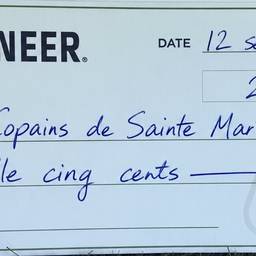 NEER®
DATE 12 se
2
Copains de Sainte Mar
lle cinq cents